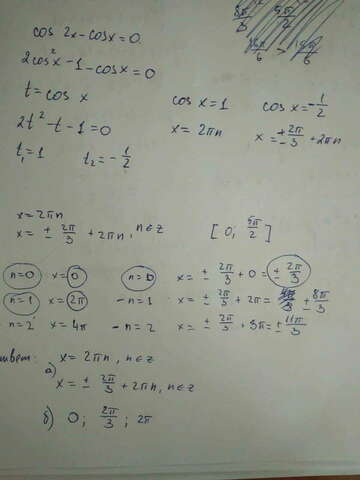 cos 2x - cosx = 0.
2cos²x - 1 - cosx = 0
t = cos x
2t² - t - 1 = 0
t₁ = 1 t₂ = - 1/2
cos x = 1
x = 2πn
cos x = - 1/2
x = ± 2π/3 + 2πn
x = 2πn
x = ± 2π/3 + 2πn, n∈z
[0; 5π/2]
n=0 x = 0 n=0 x = ± 2π/3 + 0 = ± 2π/3
n=1 x = 2π - n=1 x = ± 2π/3 + 2π = ± 8π/3
- n=2 x = 4π - n=2 x = ± 2π/3 + 3π = ± 11π/3
твет:
а) x = 2πn, n∈z
x = ± 2π/3 + 2πn, n∈z
б) 0; 2π/3; 2π